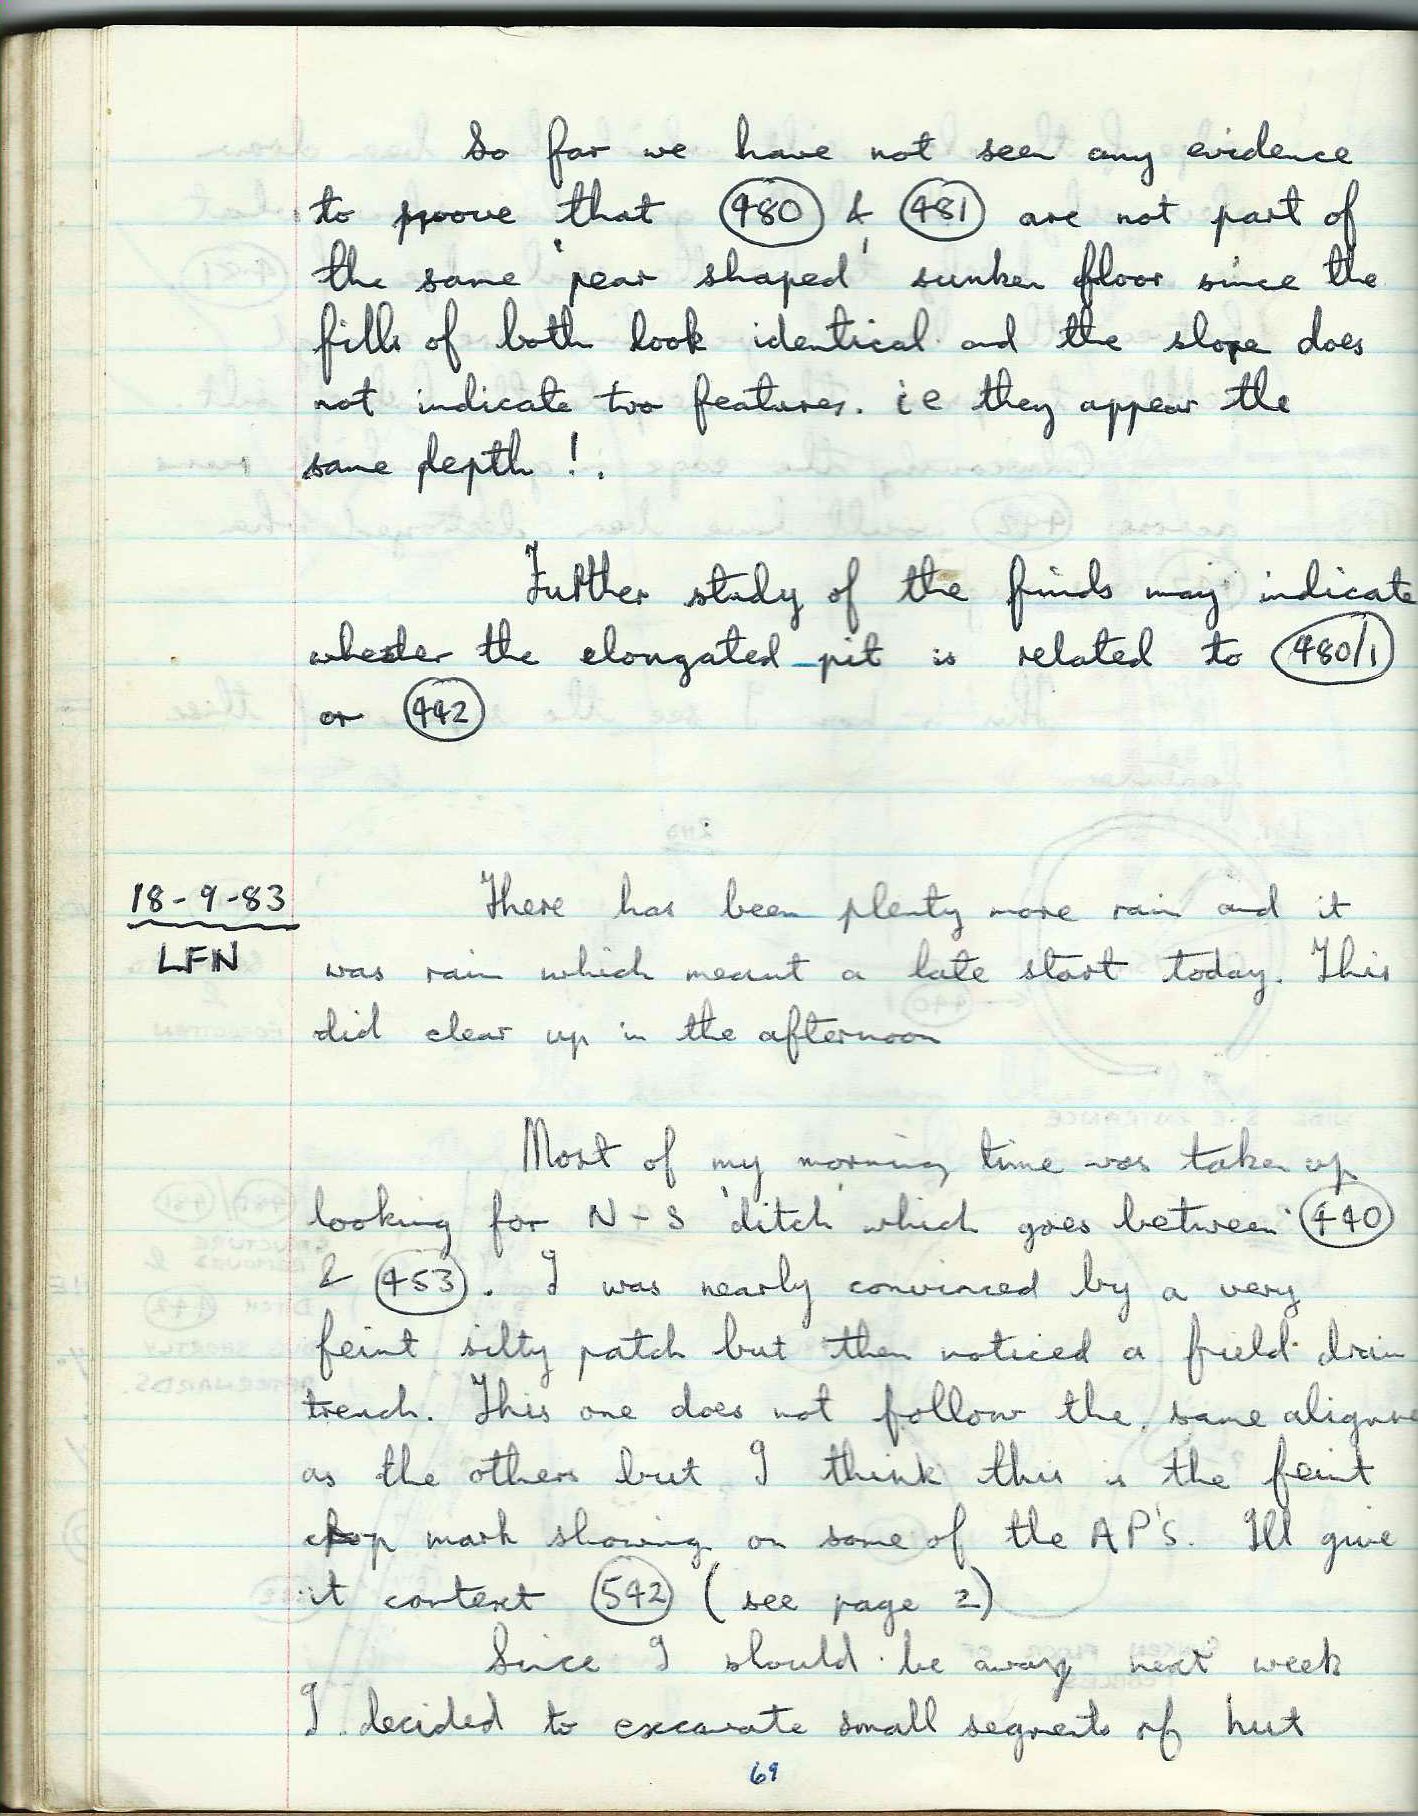 So far we have not seen any evidence
to proove that 480 & 481 are not part of
the same 'pear shaped' sunken floor since the
fills of both look identical and the slope does
not indicate two features. ie they appear the
same depth !.
Further study of the finds may indicate
whether the elongated pit is related to 480/1
or 442
18-9-83
LFN
There has been plenty more rain and it
was rain which meant a late start today. This
did clear up in the afternoon
Most of my morning time was taken up
looking for N-S 'ditch' which goes between 440
& 453. I was nearly convinced by a very
feint silty patch but then noticed a field drain
trench. This one does not follow the same alignme
as the others but I think this is the feint
crop mark showing on some of the AP'S. Ill give
it context 542 (see page 2)
Since I should be away next week
I decided to excavate small segments of hut
69